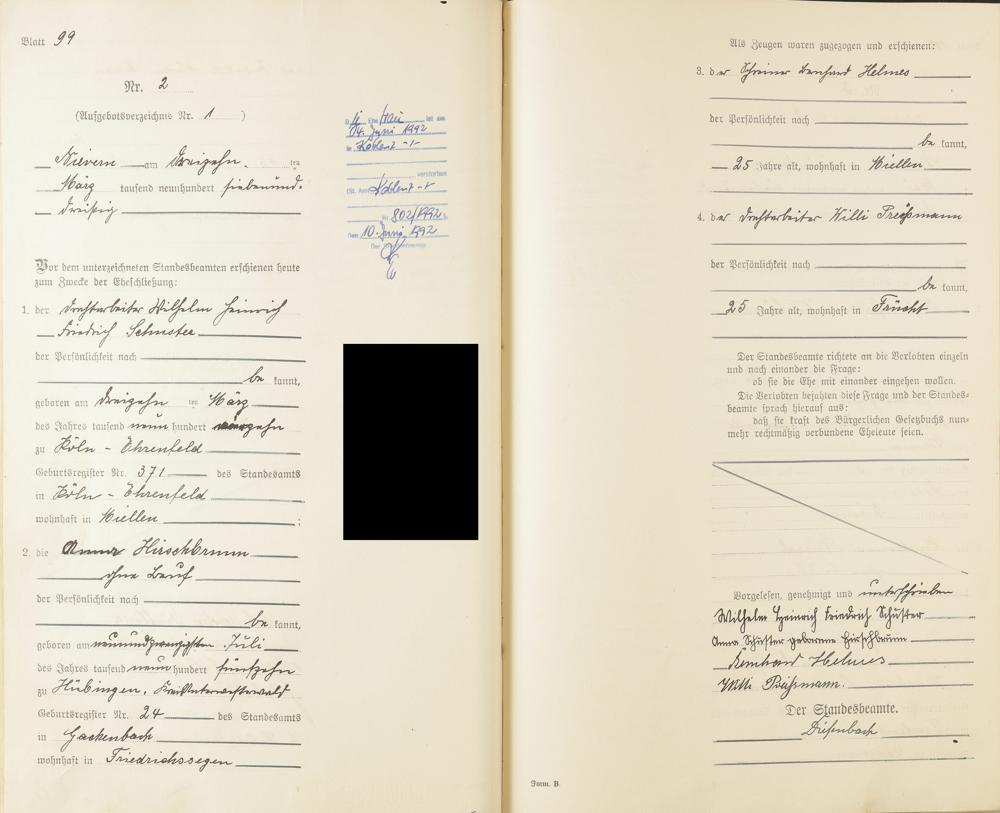 Blatt 99
Nr. 2
(Aufgebotsverzeichnis Nr. 1 )
Nievern am dreizehn ten
März tausend neunhundert siebenund-
dreißig
Vor dem unterzeichneten Standesbeamten erschienen heute
zum Zwecke der Eheschließung:
1. der Drahtarbeiter Wilhelm Heinrich
Friedrich Schuster
der Persönlichkeit nach
be kannt,
geboren am dreizehn ten März
des Jahres tausend neun hundert vierzehn
zu Köln - Ehrenfeld
Geburtsregister Nr. 371 des Standesamts
in Köln - Ehrenfeld
wohnhaft in Miellen ;
2. die Anna Hirschbrunn
ohne Beruf
der Persönlichkeit nach
be kannt,
geboren am neunundzwanzigsten Juli
des Jahres tausend neun hundert fünfzehn
zu Hübingen, Kreis Unterwesterwald
Geburtsregister Nr. 24 des Standesamts
in Gackenbach
wohnhaft in Friedrichssegen
Ehefrau ist am
04. Juni 1992
in Koblenz
verstorben
StA Koblenz
Nr. 802/1992
Den 10. Juni 1992
Der Standesbeamte
Als Zeugen waren zugezogen und erschienen:
3. der Schreiner Bernhard Helmes
der Persönlichkeit nach
be kannt,
25 Jahre alt, wohnhaft in Miellen
4. der Drahtarbeiter Willi Preißmann
der Persönlichkeit nach
be kannt,
25 Jahre alt, wohnhaft in Frücht
Der Standesbeamte richtete an die Verlobten einzeln
und nach einander die Frage:
ob sie die Ehe mit einander eingehen wollen.
Die Verlobten bejahten diese Frage und der Standes-
beamte sprach hierauf aus:
daß sie kraft des Bürgerlichen Gesetzbuchs nun-
mehr rechtmäßig verbundene Eheleute seien.
Vorgelesen, genehmigt und unterschrieben
Wilhelm Heinrich Friedrich Schuster
Anna Schuster geborene Hirschbrunn
Bernhard Helmes
Willi Preißmann.
Der Standesbeamte.
Diefenbach
Form. B